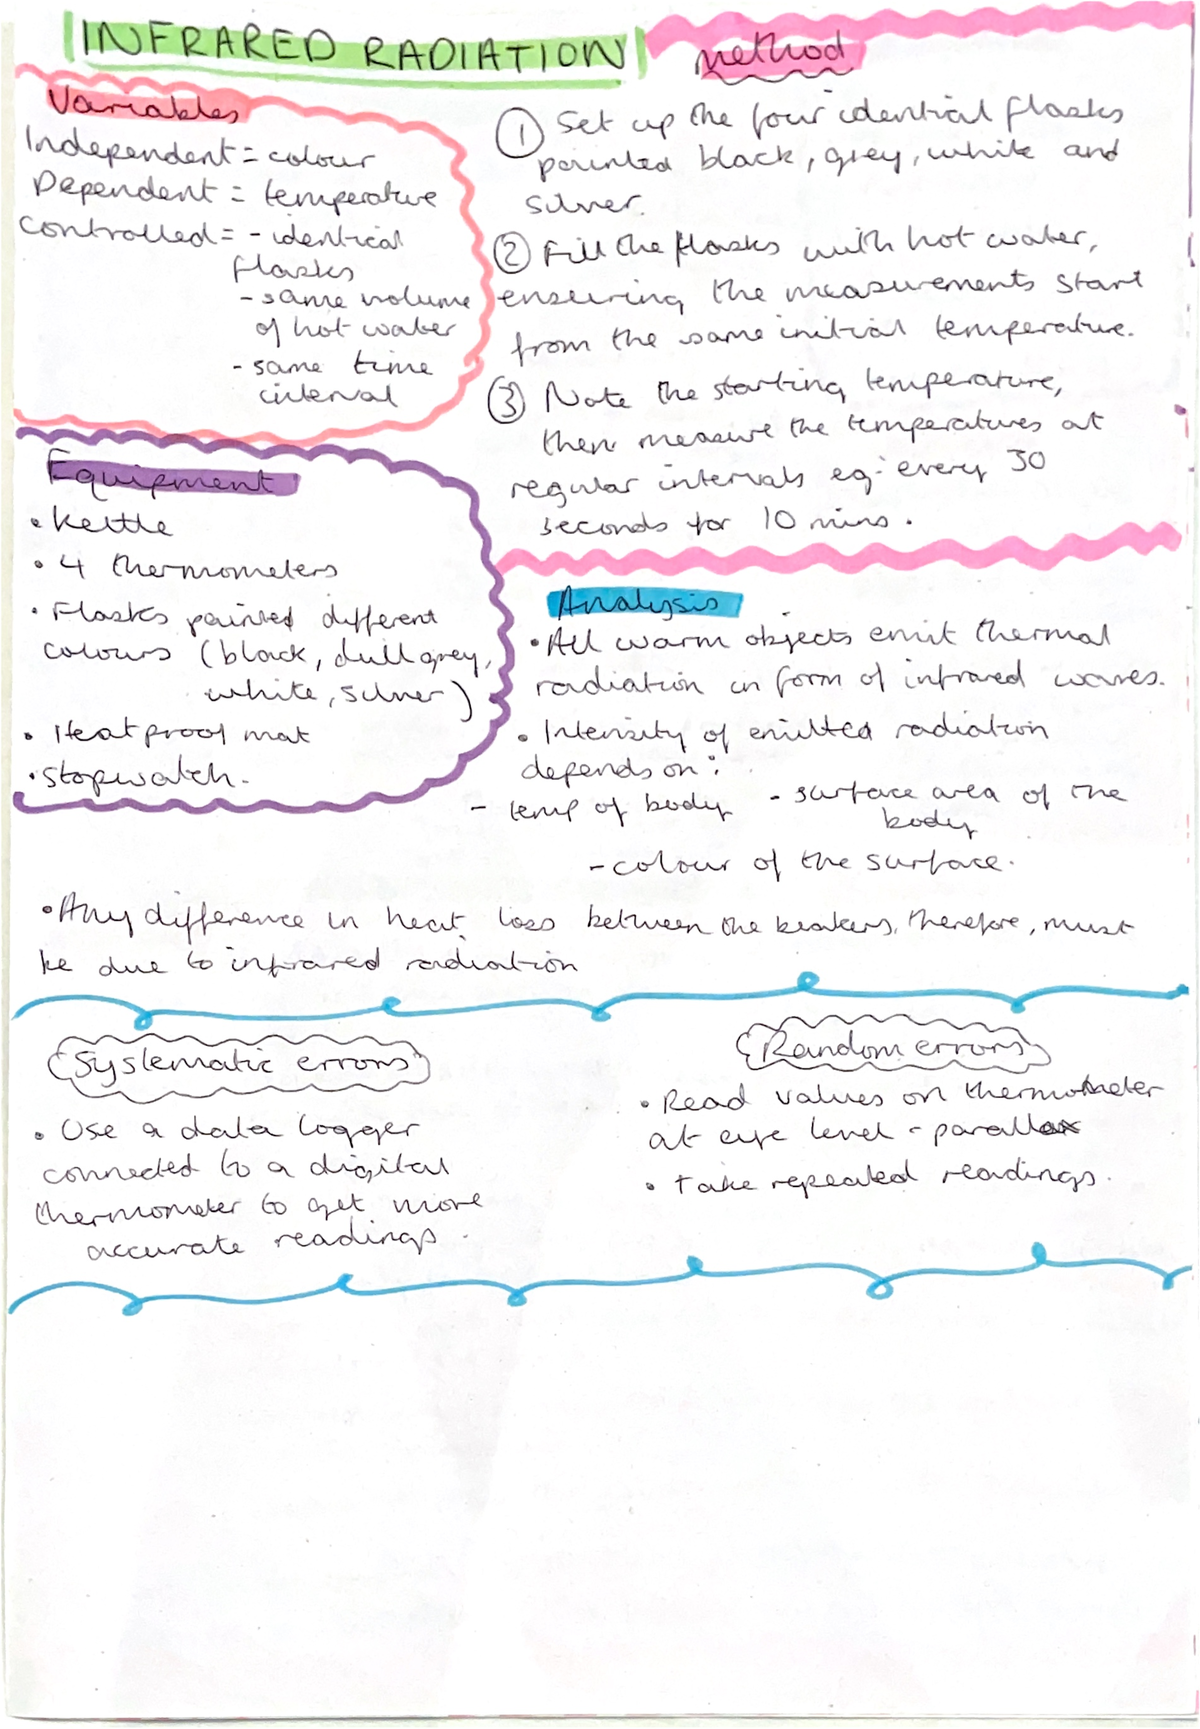 INFRARED RADIATION
Variables
Independent = colour
Dependent = temperature
Controlled = - identical
flasks
- same volume
of hot water
- same time
interval
Equipment
• Kettle
• 4 thermometers
• Flasks painted different
colours (black, dull grey,
white, silver)
• Heatproof mat
• Stopwatch.
Method
① Set up the four idential flasks
painted black, grey, white and
silver.
② Fill the flasks with hot water,
ensuring the measurements start
from the same initial temperature.
③ Note the starting temperature,
then measure the temperatures at
regular intervals eg: every 30
seconds for 10 mins.
Analysis
• All warm objects emit thermal
radiation in form of infrared waves.
• Intensity of emitted radiation
depends on:
- temp of body - surface area of the
body
- colour of the surface.
• Any difference in heat loss between the beakers, therefore, must
be due to infrared radiation
Systematic errors
• Use a data logger
connected to a digital
thermometer to get more
accurate readings.
Random errors
• Read values on thermometer
at eye level - parallax
• take repeated readings.